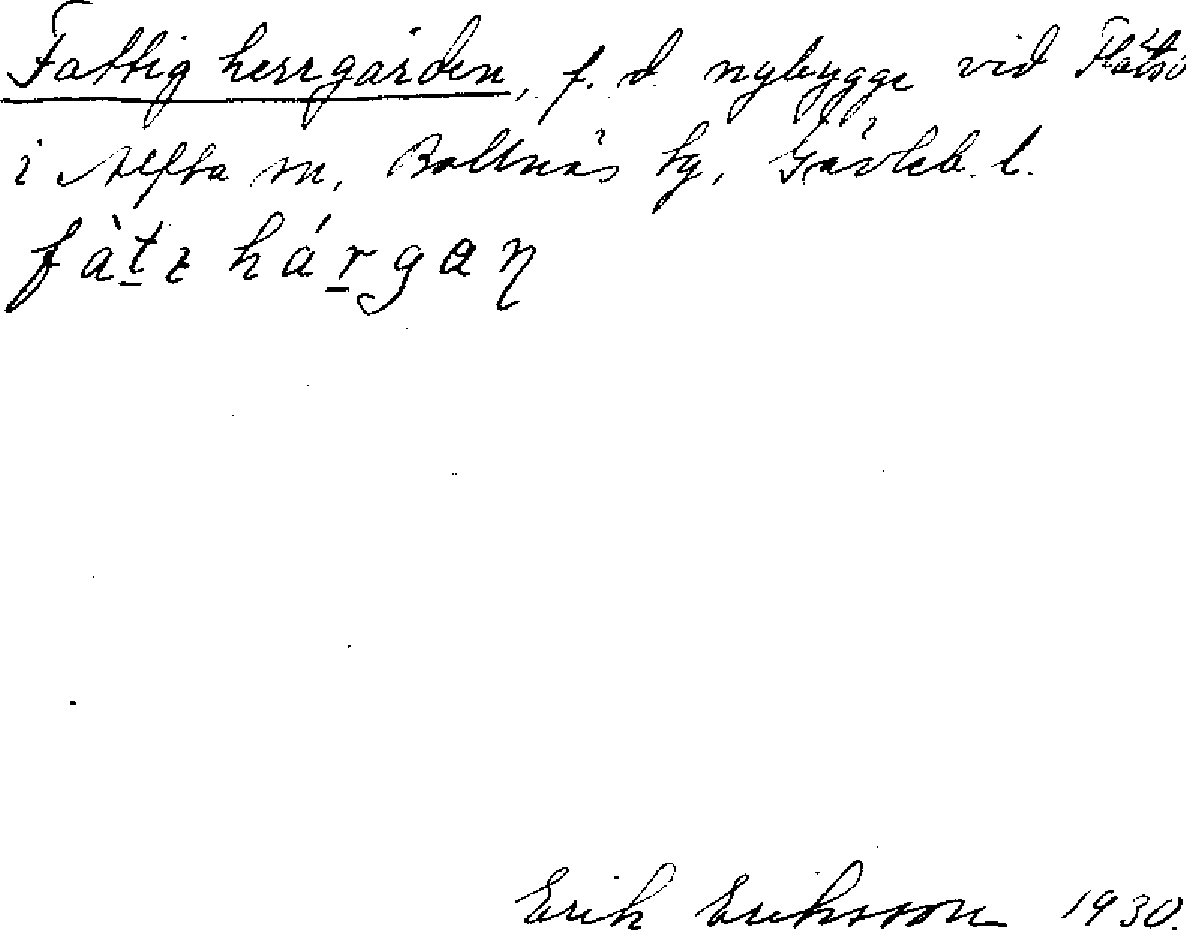 Fattigherrgården, f. d. nybygge vid Flåtsö
i Alfta sn, Bollnäs tg, Gävleb. l.
fàt̲ɩ hárgan̲
Erik Eriksson 1930.